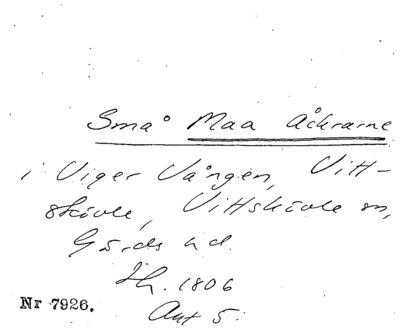 Små Maa Åkrarne
i Viger Vången, Vitt-
skövle, Vittskövle sn,
Gärds hd.
Sh. 1806
Akt 5.
Nr 7926.